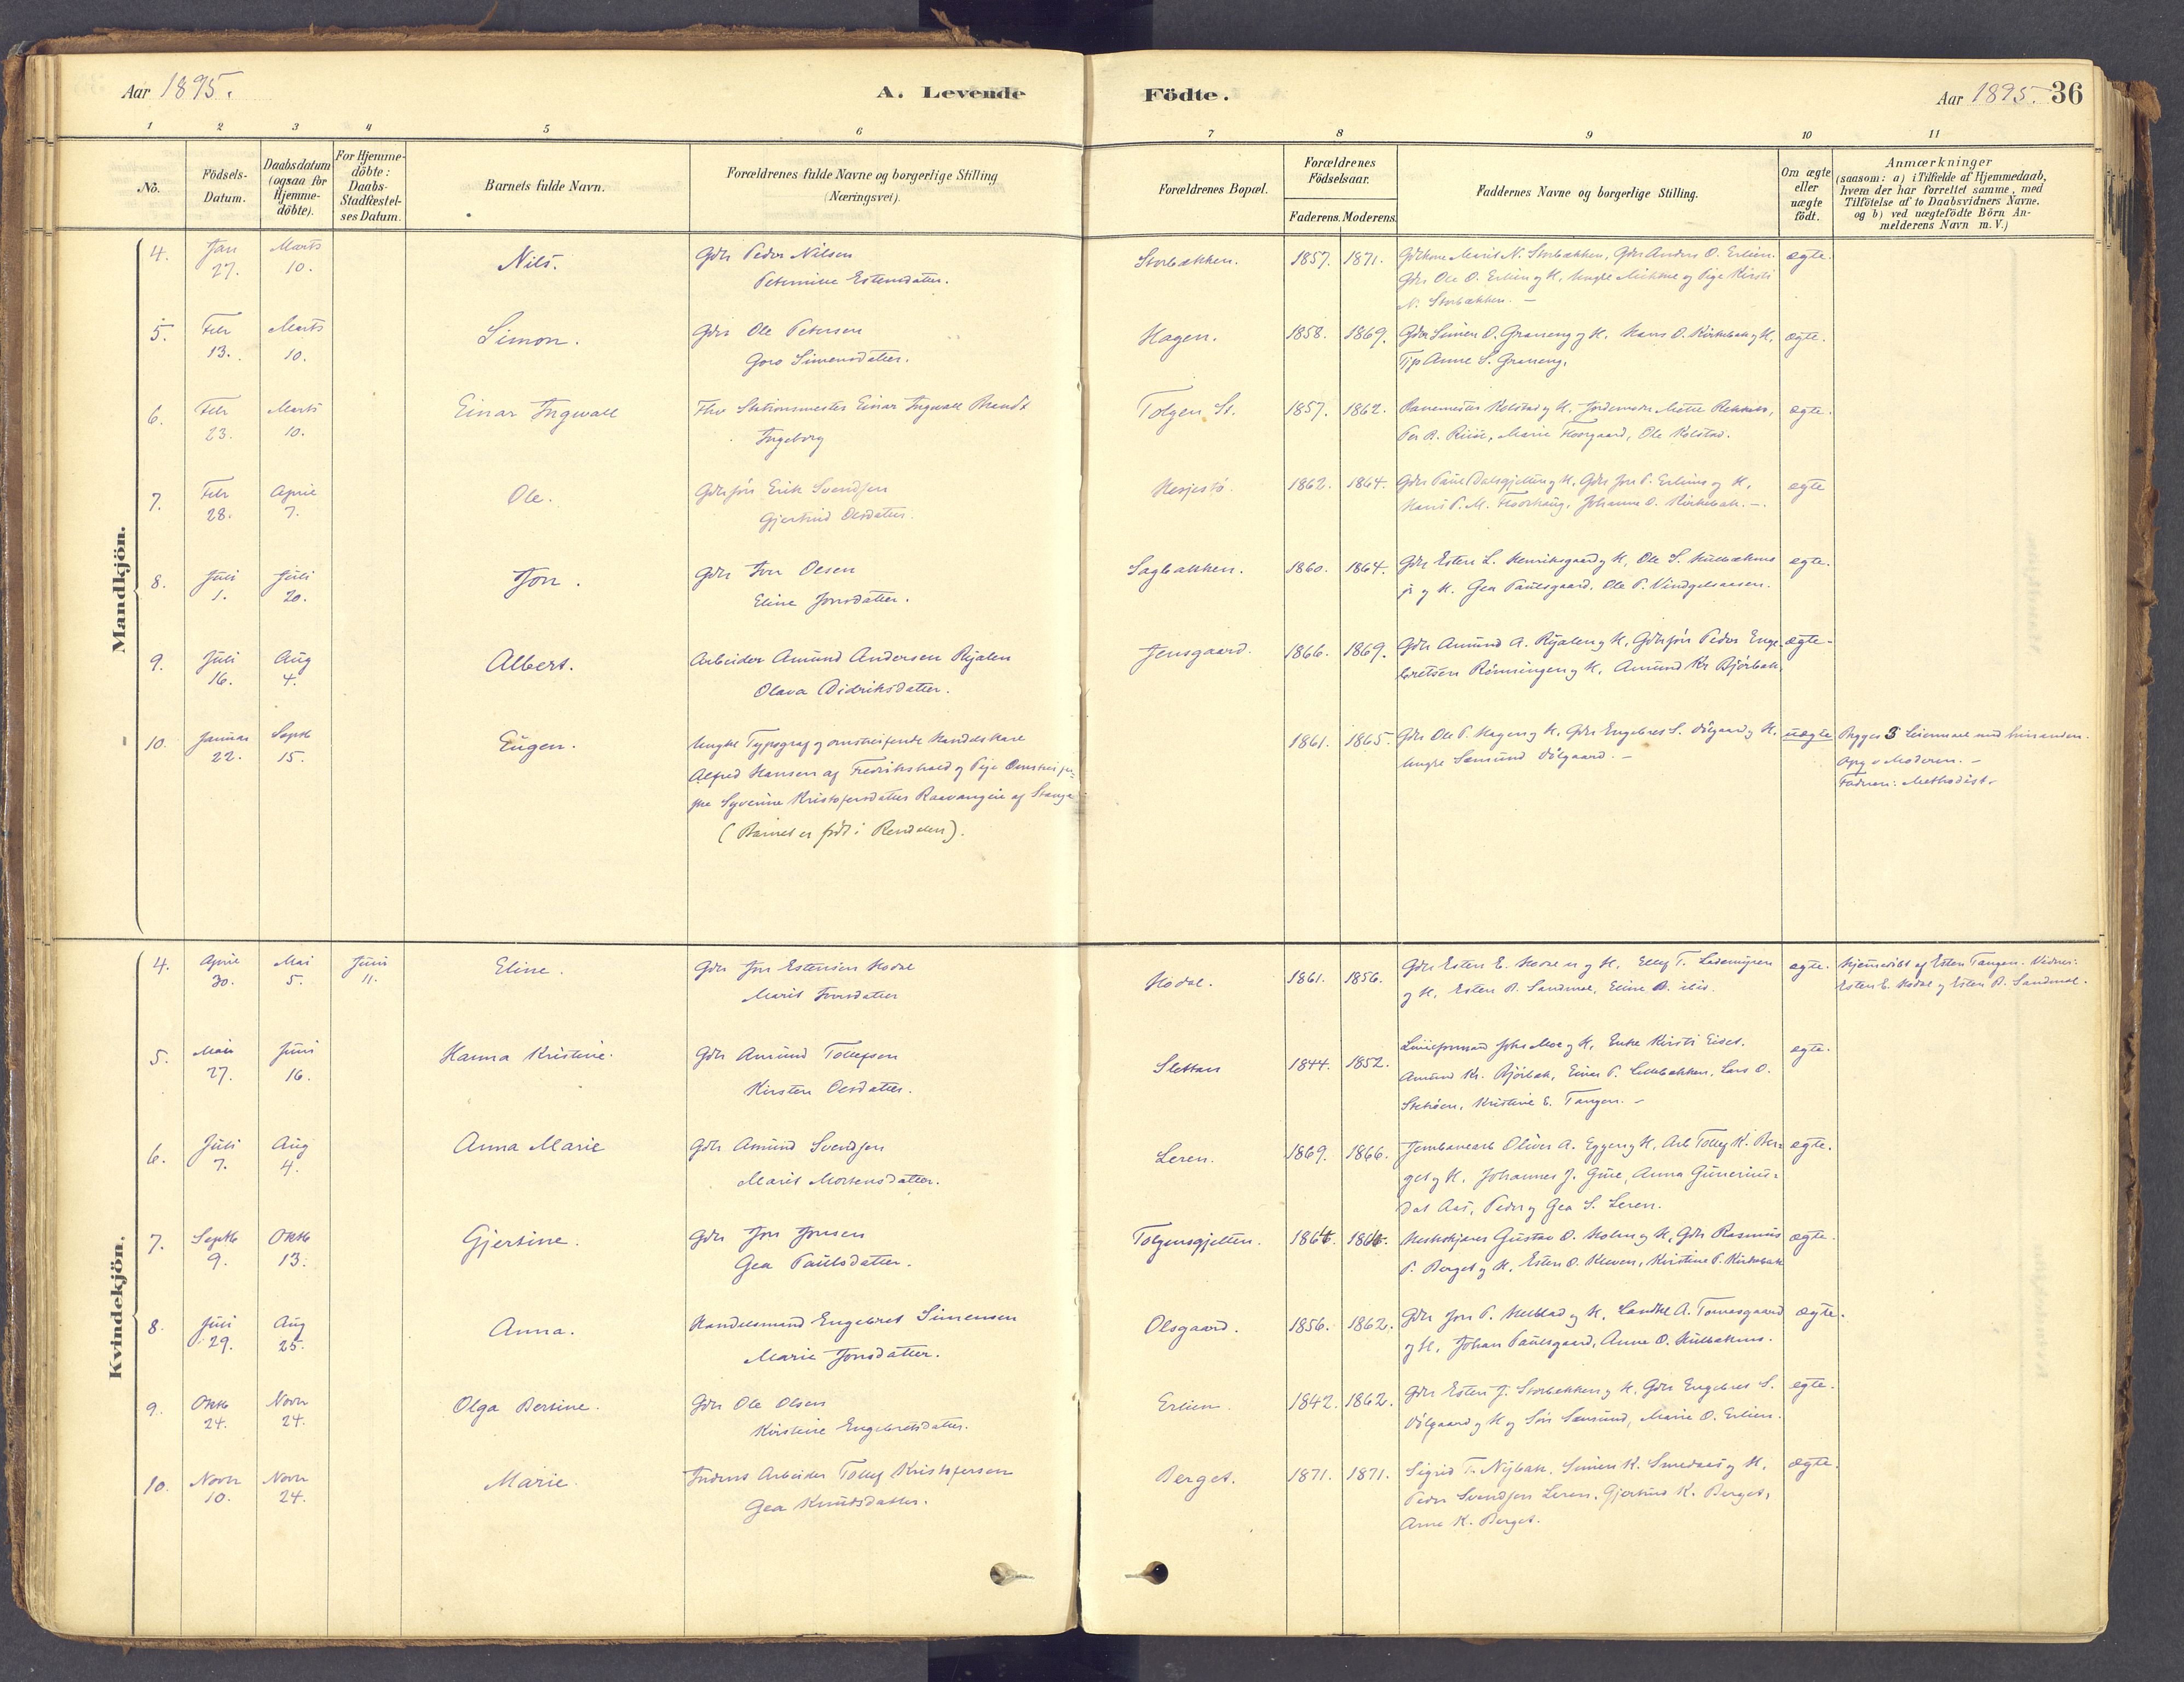 Aar 1895.
A. Levende
Födte.
Aar 1895. 36
1 2 3 4 5 6 7 8 9 10 11
No.
Födsels-
Datum.
Daabsdatum
(ogsaa for
Hjemme-
döbte).
For Hjemme-
döbte:
Daabs-
Stadfæstel-
ses Datum.
Barnets fulde Navn.
Forældrenes fulde Navne og borgerlige Stilling
(Næringsvei).
Forældrenes Bopæl.
Forældrenes
Födselsaar.
Faderens. Moderens.
Faddernes Navne og borgerlige Stilling.
Om ægte
eller
uægte
födt.
Anmærkninger
(saasom: a) i Tilfælde af Hjemmedaab,
hvem der har forrettet samme, med
Tilföielse af to Daabsvidners Navne.
og b) ved uægtefödte Börn An-
melderens Navn m. V.)
Mandkjön.
4. Jan 27. Marts 10. Nils. Gdr Peder Nilsen
Estensdatter.
Storbækken. 1857. 1871. Marit N. Storbækken, Gdr Anders O. Erlien
Gdr Ole O. Erlien og K, Pige Kirsti
N. Storbækken. —
ægte.
5. Febr 13. Marts 10. Simon. Gdr Ole Petersen
Goro Simensdatter.
Hagen. 1858. 1869. Gdr Simen O. Graneng og K, Hans O. Kirkebak og K,
Anne S. Graneng.
ægte.
6. Febr 23. Marts 10. Einar Ingwall Fhv Stationsmester Einar Ingwall Brandt
Ingeborg
Tolgen St. 1857. 1862. Banemester Kolstad og K, Jordemoder Mette
Marie Floorgaard, Ole Kolstad.
ægte.
7. Febr 28. April 7. Ole. Gdrsön Erik Svendsen
Gjertrud Olsdatter.
1862. 1864. Gdr Paul Dalsgjelten og K, Gdr Jon P. Erlien og K,
Hans P. M. Floorhaug, Johanne O. Kirkebak. —.
ægte
8. Juli 1. Juli 20. Jon. Gdr Iver Olsen
Eline Jonsdatter.
Sagbakken. 1860. 1864. Gdr Esten L. Henriksgaard og K, Ole S.
jr og K. Gea Paulsgaard, Ole P. Vindgelsaasen.
ægte.
9. Juli 16. Aug 4. Albert. Arbeider Amund Andersen Ryalen
Olava Didriksdatter.
Jensgaard. 1866. 1869. Gdr Amund A. Ryalen og K, Gdrsön Peder Enge-
bretsen Rönningen og K, Amund Kr Björbak.
ægte.
10. Januar 22. Septb 15. Eugen. Ungkl Typograf og omstreifende Handelskarl
Alfred Hansen af Fredrikshald og Pige Omstreifer-
ske Syverine Kristofersdatter Raavangen af Stange
(Barnet er född i Rendalen).
1861. 1865. Gdr Ole P. Hagen og K, Gdr Engebret S. Völgaard og K,
Ungkl Sæmund Völgaard. —
uægte Begges 3 Leiermaal med hinanden.
Opg v Moderen. —
Faderen: Methodist.
Kvindekjön.
4. April 30. Mai 5. Juni 11. Eline. Gdr Jon Estensen Hodal
Marit Iversdatter
Hodal. 1861. 1856. Gdr Esten E. Hodal og K, Ellef T. Lademyren
og K, Esten B. Sandmæl, Eline B. ibid.
ægte. Hjemmedöbt af Esten Tangen. Vidner:
Esten E. Hodal og Esten B. Sandmæl.
5. Mai 27. Juni 16. Hanna Kristine. Gdr Amund Tollefsen
Kirsten Olsdatter.
Slettan 1844. 1852. Linieformand Johs Moe og K, Enke Kirsti Eidet.
Amund Kr. Björbak, Einar P. Lillebakken, Lars O.
Kristine E. Tangen. —
ægte.
6. Juli 7. Aug 4. Anna Marie Gdr Amund Svendsen
Marit Mortensdatter.
Leren. 1869. 1866. Jernbanearb Oliver A. Eggen og K, Arb Tollef K. Ber-
get og K, Johannes J. Anna Gunerius-
dat Aas, Peder og Gea S. Leren.
ægte.
7. Septb 9. Oktb 13. Gjertine. Gdr Jon Jonsen
Gea Paulsdatter.
Tolgensgjelten. Gustav O. Holm og K, Gdr Rasmus
P. Berget og K, Esten O. Kleven, Kirstine P. Kirkebak
ægte.
8. Juli 29. Aug 25. Anna. Handelsmand Engebret Simensen
Marie Jonsdatter.
Olsgaard. 1856. 1862. Gdr Jon P. og K, A. Tomasgaard
og K, Johan Paulsgaard, Anne O.
ægte.
9. Oktb 24. Novbr 24. Olga Bersine. Gdr Ole Olsen
Kirstine Engebretsdatter.
Erlien. 1842. 1862. Gdr Esten J. Storbekken og K, Gdr Engebret S.
Völgaard og K og Sön Sæmund, Marie O. Erlien.
ægte.
10. Novbr 10. Novbr 24. Marie. Inderst Arbeider Tollef Kristofersen
Gea Knudsdatter.
Berget. 1871. 1871. Sigrid T. Nybak, Simen K. og K,
Peder Svendsen Leren, Gjertrud K. Berget,
Arne K. Berget.
ægte.